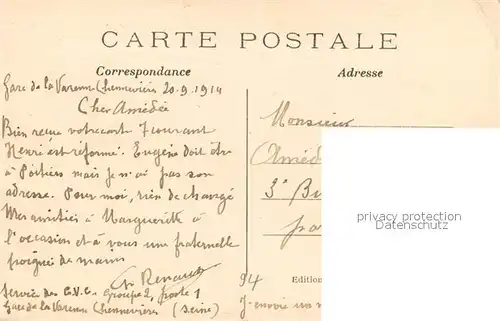 CARTE POSTALE
Correspondance
Adresse
Gare de la Varenne Chennevières 20.9.1914
Cher Amédée
Bien reçue votre carte 7 courant
Henri est réformé. Eugène doit être
à Poitiers mais je n'ai pas son
adresse. Pour moi, rien de changé
Mes amitiés à Marguerite à
l'occasion et à vous une fraternelle
poignée de mains
Ch Renault
Service des C.V.C. groupe 2, poste 1
Gare de la Varenne Chennevières (Seine)
Monsieur
Améd
3e Bu
pa
privacy protection
Datenschutz
94
Edition
J'envoie un m